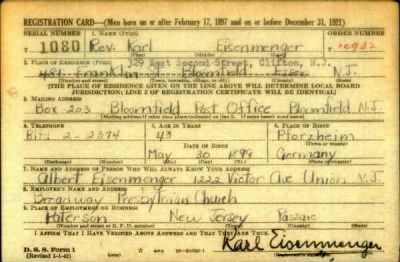 REGISTRATION CARD—(Men born on or after February 17, 1897 and on or before December 31, 1921)
SERIAL NUMBER 1. NAME (Print) ORDER NUMBER
1080 Rev. Karl Eisenmenger 10932
(First) (Middle) (Last)
329 West Second Street, Clifton, N.J.
2. PLACE OF RESIDENCE (Print)
Franklin Bloomfield Essex N.J.
(Number and street) (Town, township, village, or city) (County) (State)
[THE PLACE OF RESIDENCE GIVEN ON THE LINE ABOVE WILL DETERMINE LOCAL BOARD
JURISDICTION; LINE 2 OF REGISTRATION CERTIFICATE WILL BE IDENTICAL]
3. MAILING ADDRESS
Box 203 Bloomfield Post Office Bloomfield N.J.
[Mailing address if other than place indicated on line 2. If same insert word same]
4. TELEPHONE 5. AGE IN YEARS 6. PLACE OF BIRTH
2-2074 43 Pforzheim
DATE OF BIRTH (Town or county)
May 30 1899 Germany
(Exchange) (Number) (Mo.) (Day) (Yr.) (State or country)
7. NAME AND ADDRESS OF PERSON WHO WILL ALWAYS KNOW YOUR ADDRESS
Albert Eisenmenger 1222 Victor Ave Union N.J.
8. EMPLOYER'S NAME AND ADDRESS
Broadway Presbyterian Church
9. PLACE OF EMPLOYMENT OR BUSINESS
Paterson New Jersey Passaic
(Number and street or R. F. D. number) (Town) (County) (State)
I AFFIRM THAT I HAVE VERIFIED ABOVE ANSWERS AND THAT THEY ARE TRUE.
D. S. S. Form 1
(Revised 1-1-42) Karl Eisenmenger